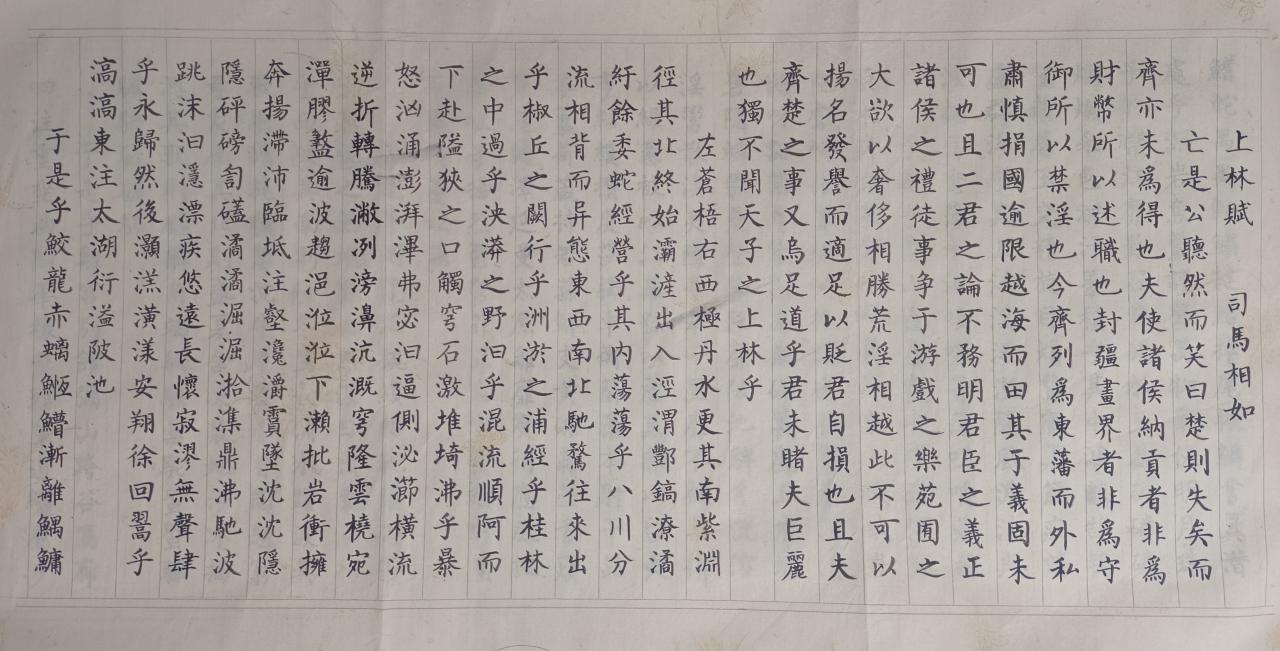 上林賦　司馬相如
亡是公聽然而笑曰楚則失矣而
齊亦未爲得也夫使諸侯納貢者非爲
財幣所以述職也封疆畫界者非爲守
御所以禁淫也今齊列爲東藩而外私
肅慎捐國逾限越海而田其于義固未
可也且二君之論不務明君臣之義正
諸侯之禮徒事争于游戲之樂苑囿之
大欲以奢侈相勝荒淫相越此不可以
揚名發譽而適足以貶君自損也且夫
齊楚之事又烏足道乎君未睹夫巨麗
也獨不聞天子之上林乎
左蒼梧右西極丹水更其南紫淵
徑其北終始灞滻出入涇渭酆鎬潦潏
紆餘委蛇經營乎其内蕩蕩乎八川分
流相背而异態東西南北馳騖往來出
乎椒丘之闕行乎洲淤之浦經乎桂林
之中過乎泱漭之野汩乎混流順阿而
下赴隘狹之口觸穹石激堆埼沸乎暴
怒洶涌澎湃滭弗宓汩逼側泌瀄橫流
逆折轉騰潎洌滂濞沆溉穹隆雲橈宛
潬膠盭逾波趨浥涖涖下瀨批岩衝擁
奔揚滯沛臨坻注壑瀺灂霣墜沈沈隱
隱砰磅訇礚潏潏淈淈湁潗鼎沸馳波
跳沫汩㶏漂疾悠遠長懷寂漻無聲肆
乎永歸然後灝溔潢漾安翔徐回翯乎
滈滈東注太湖衍溢陂池
于是乎鮫龍赤螭䱭䲛漸離鰅鳙